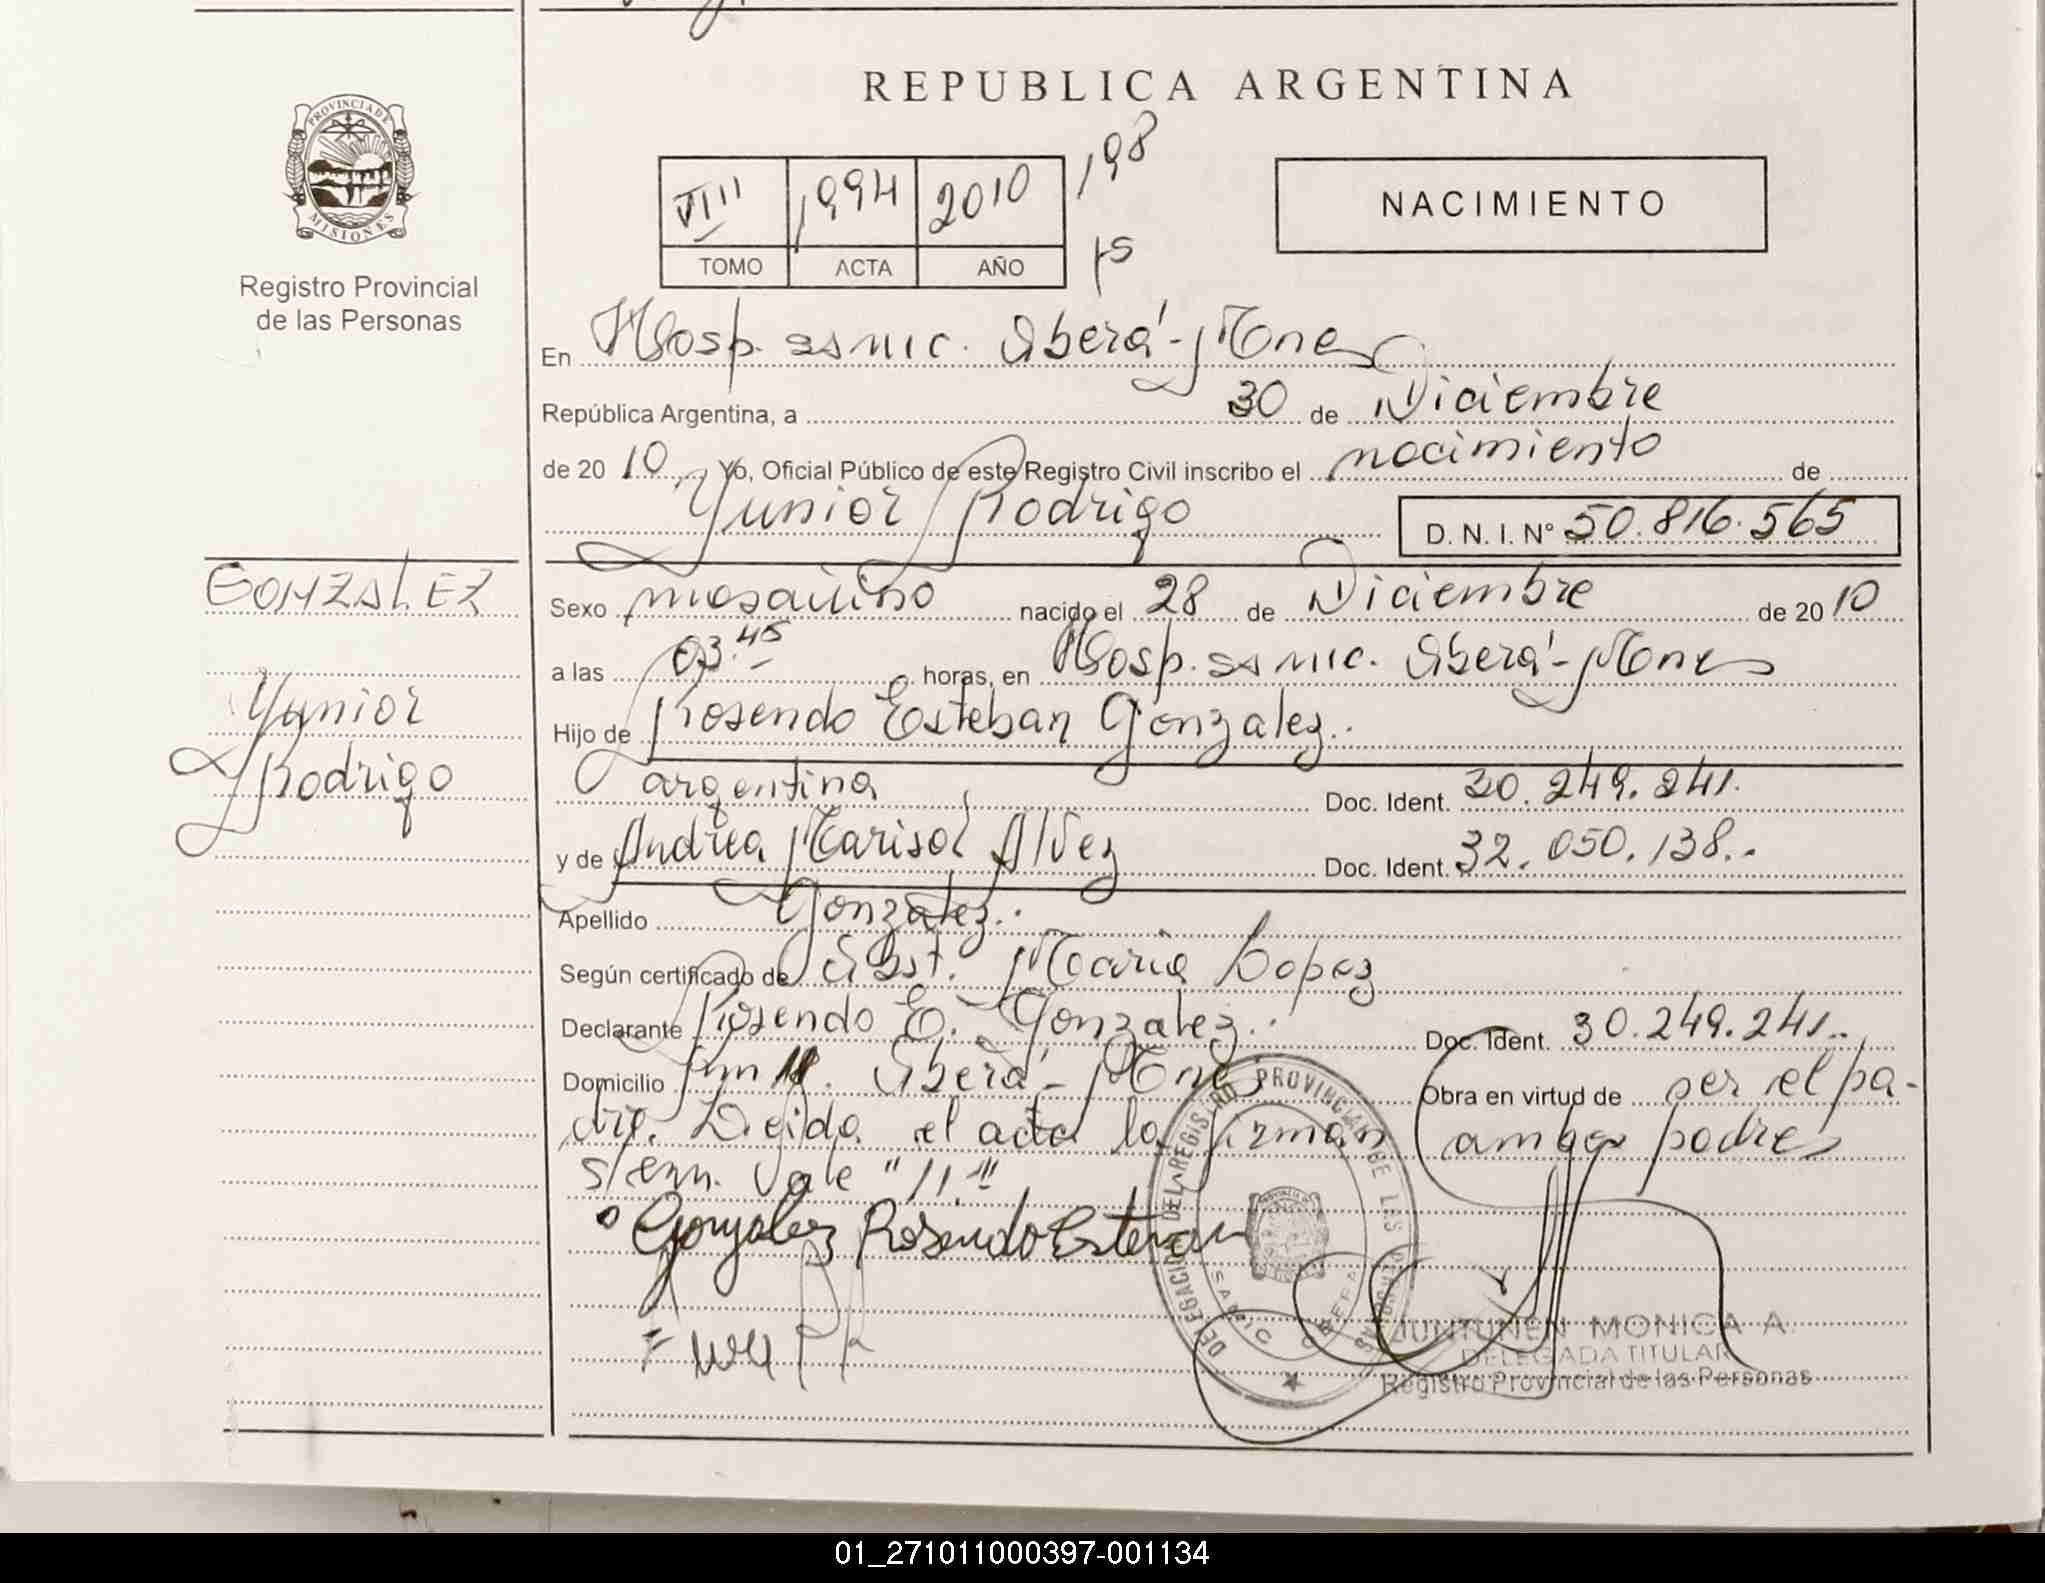 REPUBLICA ARGENTINA
PROVINCIA DE
MISIONES
Registro Provincial
de las Personas
VIII 1994 2010 198
TOMO ACTA AÑO 15
NACIMIENTO
En Hosp. samic. Oberá - Mnes
República Argentina, a 30 de Diciembre
de 20 10 Yo, Oficial Público de este Registro Civil inscribo el nacimiento de
Yunior Rodrigo D. N. I. Nº 50.816.565
GONZALEZ
Yunior
Rodrigo
Sexo masculino nacido el 28 de Diciembre de 20 10
a las 03.45 horas, en Hosp. samic. Oberá - Mnes
Hijo de Rosendo Esteban Gonzalez..
argentina Doc. Ident. 30.249.241.
y de Andrea Marisol Alvez Doc. Ident. 32.050.138..
Apellido Gonzalez..
Según certificado de Obst. Maria Lopez
Declarante Rosendo E. Gonzalez.. Doc. Ident. 30.249.241..
Domicilio Km 11. Oberá - Mnes Obra en virtud de ser el pa-
dre. Leida el acta la firman ambos padres
s/enm. Vale "11."
Gonzalez Rosendo Estevan
DELEGACION DEL REGISTRO PROVINCIAL DE LAS PERSONAS
JUNTUNEN MONICA A.
DELEGADA TITULAR
Registro Provincial de las Personas
01_271011000397-001134